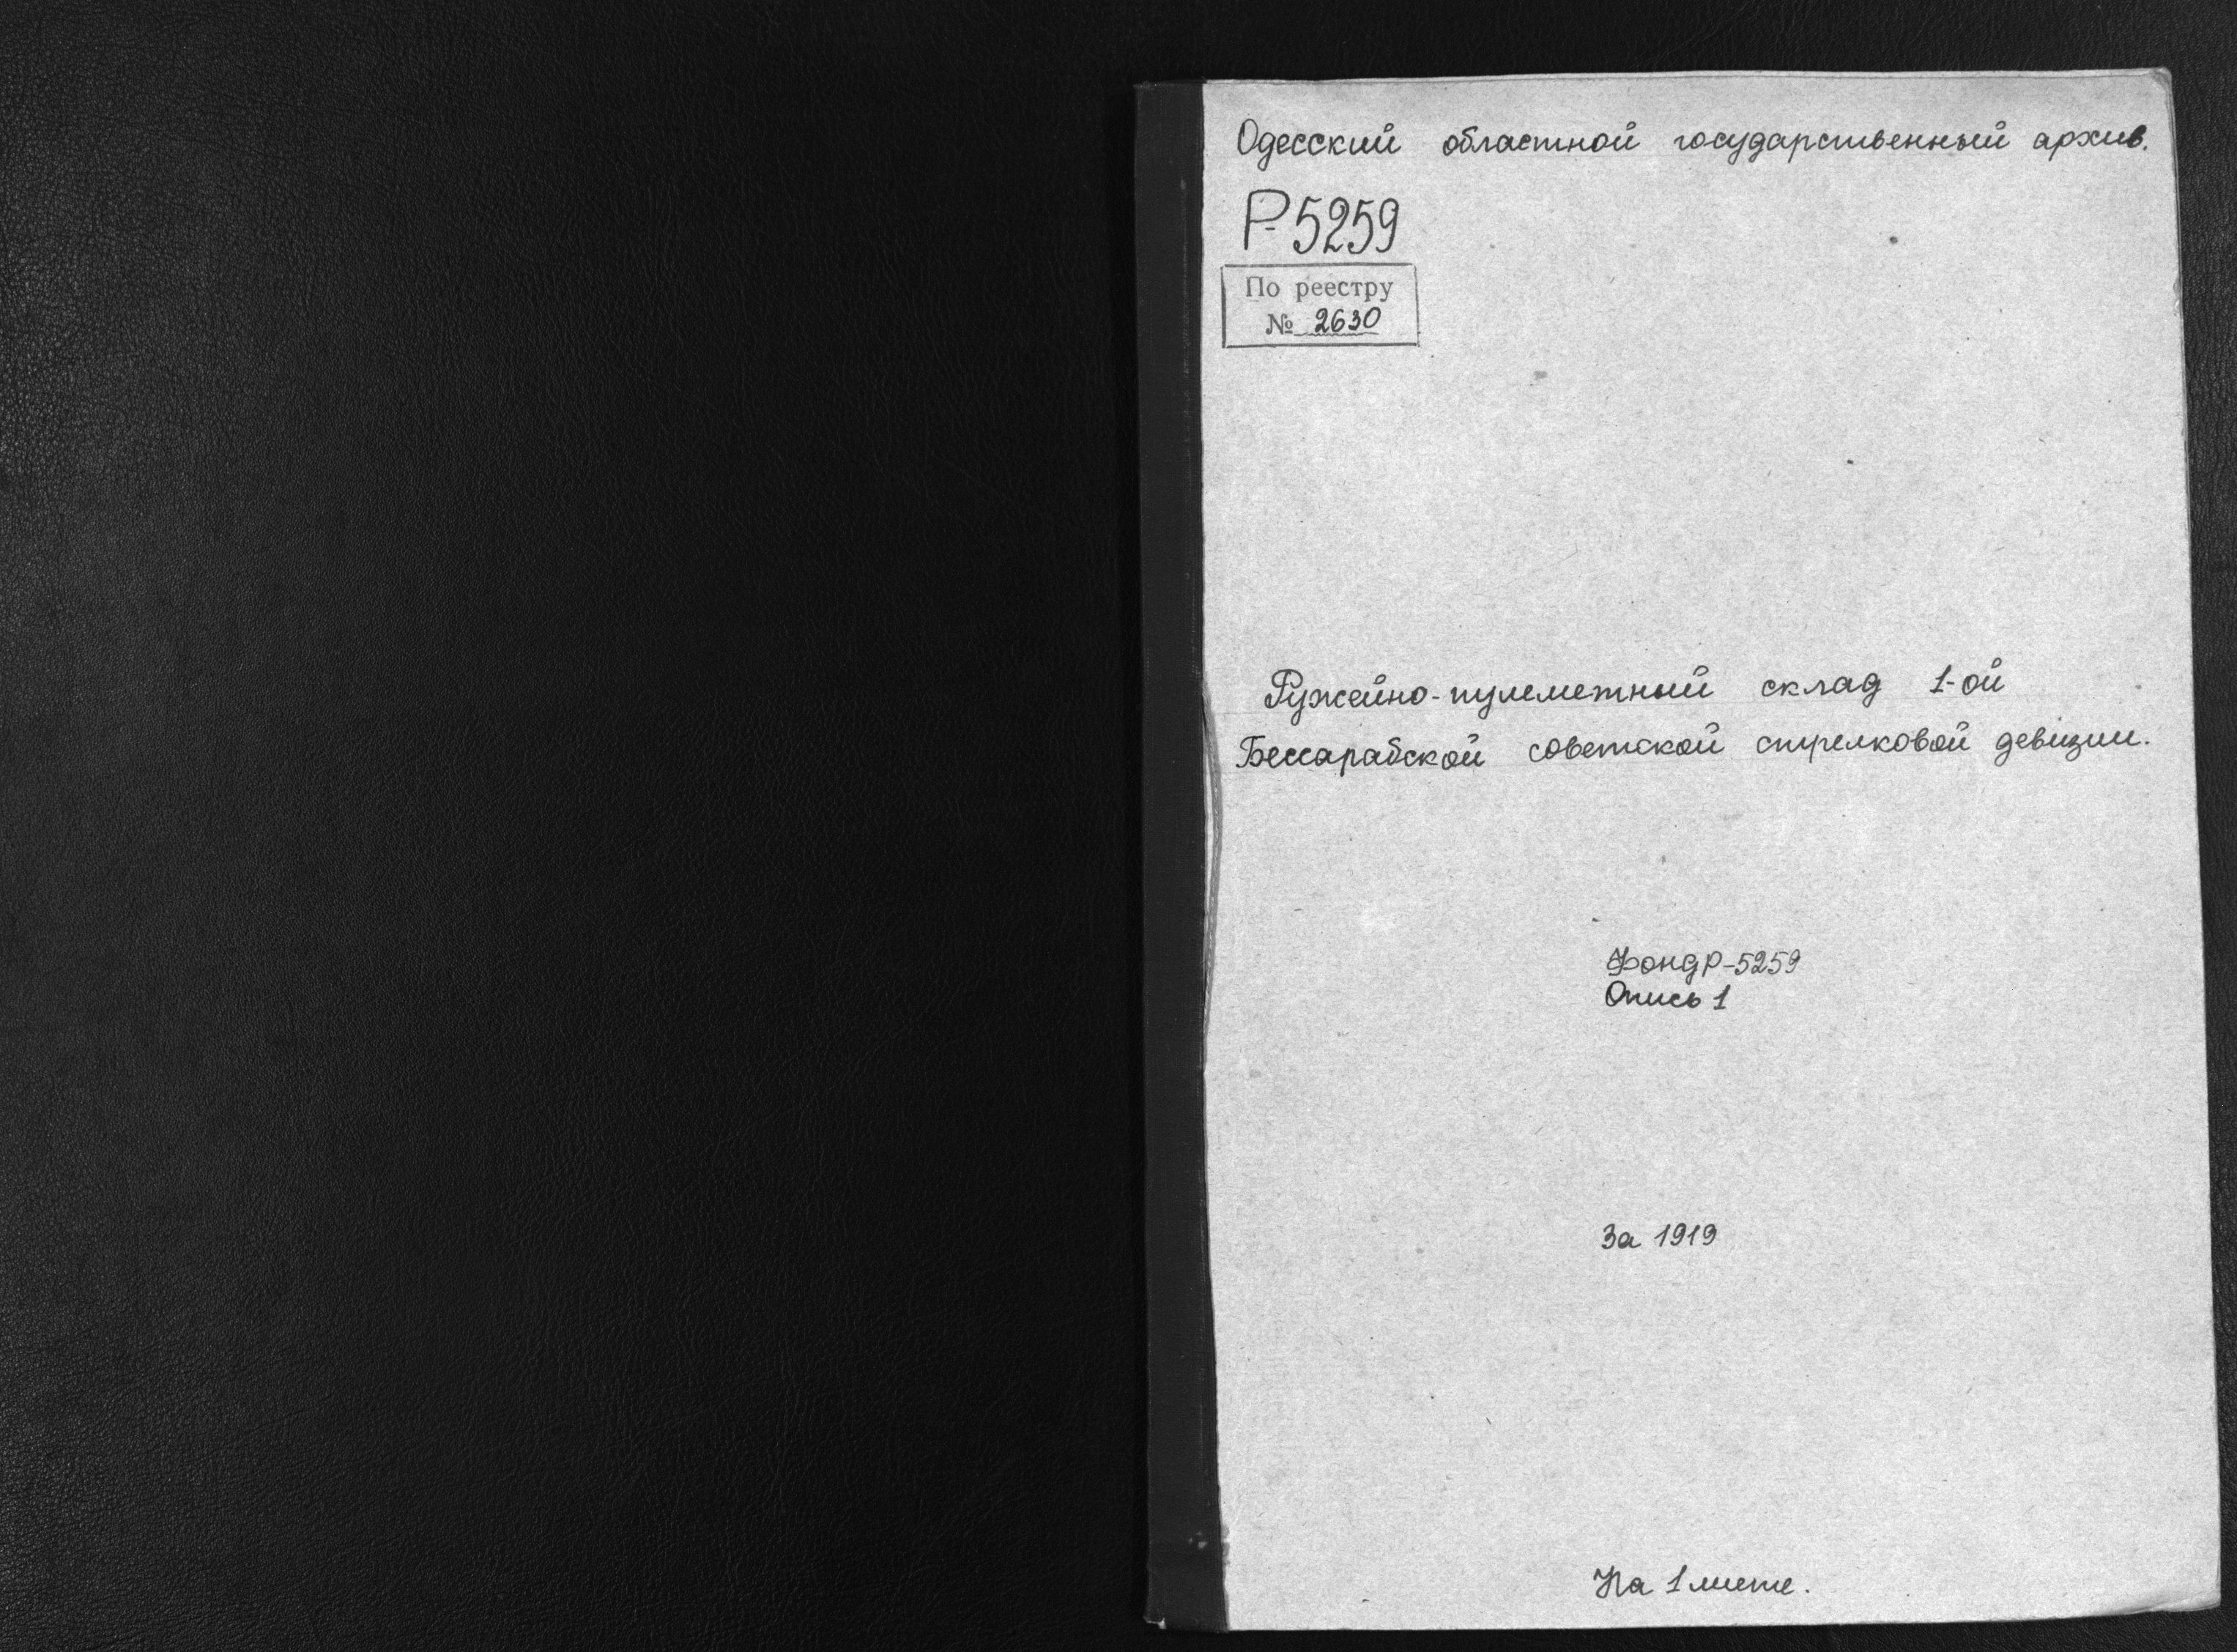 Одесский областной государственный архив.
Р-5259
По реестру
№ 2630
Ружейно-пулеметный склад 1-ой
Бессарабской советской стрелковой девизии.
Фонд Р-5259
Опись 1
За 1919
На 1 листе.